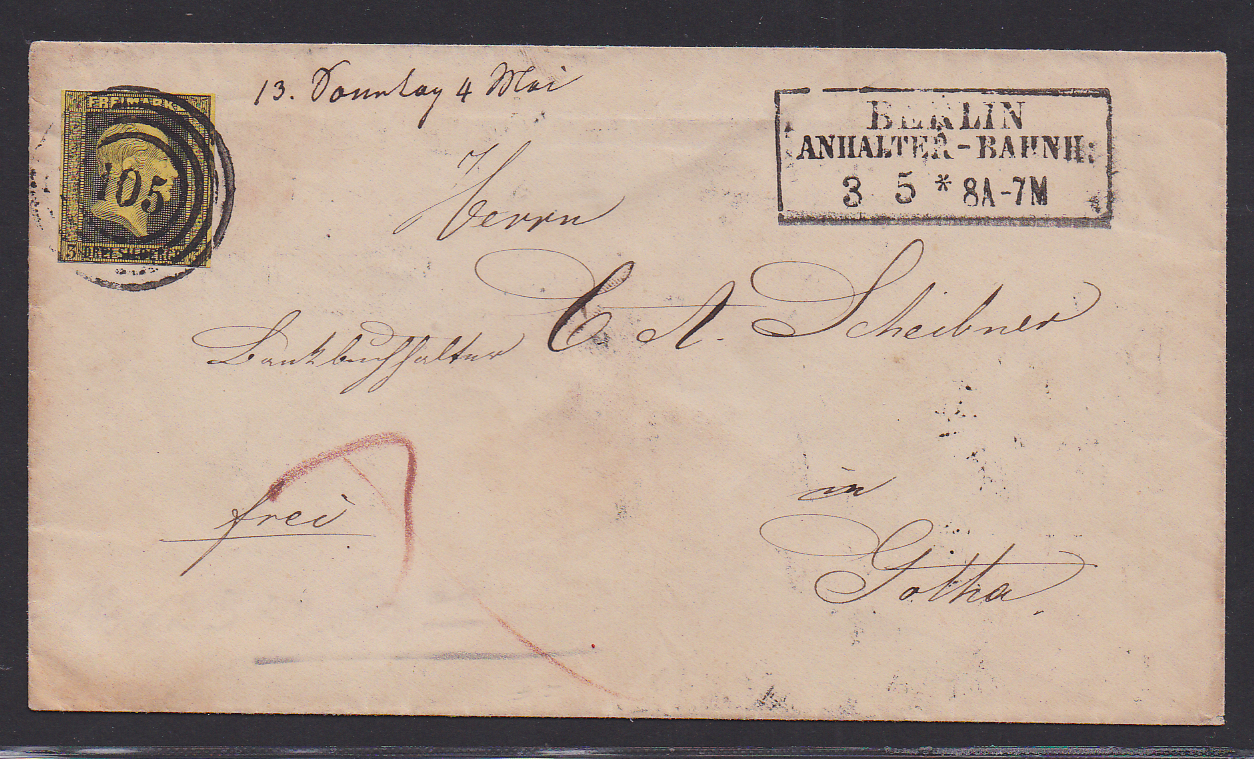 13. Sonntag 4 Mai
FREIMARKE
105
3 DREI SILBERGR. 3
BERLIN
ANHALTER-BAHNH:
3 5 * 8A-7M
Herrn
C A. Scheibner
Bankbuchhalter
frei
in
Gotha.